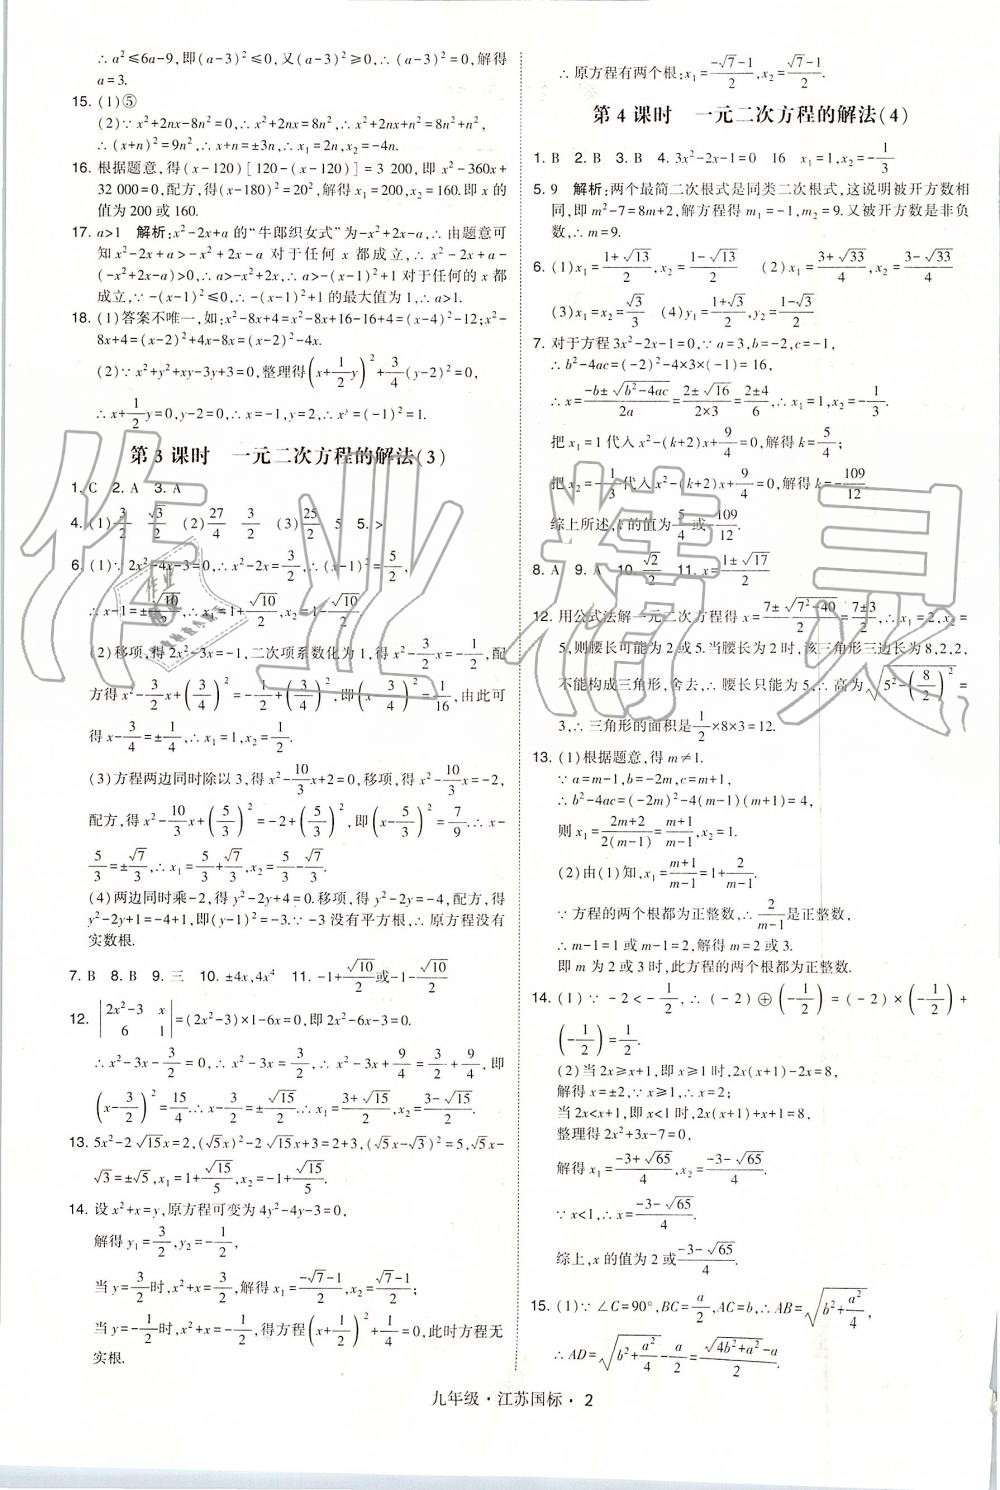 ∴a²≤6a-9,即(a-3)²≤0,又(a-3)²≥0,∴(a-3)²=0,解得
a=3.
15. (1)⑤
(2)∵x²+2nx-8n²=0,∴x²+2nx=8n²,∴x²+2nx+n²=8n²+n²,
∴(x+n)²=9n²,∴x+n=±3n,∴x₁=2n,x₂=-4n.
16. 根据题意,得(x-120)[120-(x-120)]=3 200,即x²-360x+
32 000=0,配方,得(x-180)²=20²,解得x₁=200,x₂=160.即x的
值为200或160.
17. a>1 解析:x²-2x+a的“牛郎织女式”为-x²+2x-a,∴由题意可
知x²-2x+a>-x²+2x-a对于任何x都成立,∴x²-2x+a-
(-x²+2x-a)>0,∴a>-x²+2x,∴a>-(x-1)²+1对于任何的x都
成立,∵-(x-1)²≤0,∴-(x-1)²+1的最大值为1,∴a>1.
18. (1)答案不唯一,如:x²-8x+4=x²-8x+16-16+4=(x-4)²-12;x²-
8x+4=(x-2)²+4x-8x=(x-2)²-4x.
(2)∵x²+y²+xy-3y+3=0,整理得(x+1/2y)²+3/4(y-2)²=0,
∴x+1/2y=0,y-2=0,∴x=-1,y=2,∴xʸ=(-1)²=1.
第3课时 一元二次方程的解法(3)
1. C 2. A 3. A
4. (1)3/2 √3/2 (2)27/4 3/2 (3)25/2 5 5. >
6. (1)∵2x²-4x-3=0,∴x²-2x=3/2,∴(x-1)²=5/2,
∴x-1=±√10/2,∴x₁=1+√10/2,x₂=1-√10/2.
(2)移项,得2x²-3x=-1,二次项系数化为1,得x²-3/2x=-1/2,配
方得x²-3/2x+(3/4)²=-1/2+(3/4)²,即(x-3/4)²=1/16,由此可
得x-3/4=±1/4,∴x₁=1,x₂=1/2.
(3)方程两边同时除以3,得x²-10/3x+2=0,移项,得x²-10/3x=-2,
配方,得x²-10/3x+(5/3)²=-2+(5/3)²,即(x-5/3)²=7/9.∴x-
5/3=±√7/3,∴x₁=5/3+√7/3,x₂=5/3-√7/3.
(4)两边同时乘-2,得y²-2y+4=0.移项,得y²-2y=-4,配方,得
y²-2y+1=-4+1,即(y-1)²=-3.∵-3没有平方根,∴原方程没有
实数根.
7. B 8. B 9. 三 10. ±4x,4x⁴ 11. -1+√10/2或-1-√10/2
12. |2x²-3 x
6 1|=(2x²-3)×1-6x=0,即2x²-6x-3=0.
∴x²-3x-3/2=0,∴x²-3x=3/2,∴x²-3x+9/4=3/2+9/4,即
(x-3/2)²=15/4.∴x-3/2=±√15/2.∴x₁=(3+√15)/2,x₂=(3-√15)/2.
13. 5x²-2√15x=2,(√5x)²-2√15x+3=2+3,(√5x-√3)²=5,√5x-
√3=±√5,x₁=1+√15/5,x₂=-1+√15/5.
14. 设x²+x=y,原方程可变为4y²-4y-3=0,
解得y₁=3/2,y₂=-1/2,
当y=3/2时,x²+x=3/2,解得x₁=(-√7-1)/2,x₂=(√7-1)/2;
当y=-1/2时,x²+x=-1/2,得方程(x+1/2)²+1/4=0,此时方程无
实根.
∴原方程有两个根:x₁=(-√7-1)/2,x₂=(√7-1)/2.
第4课时 一元二次方程的解法(4)
1. B 2. B 3. B 4. 3x²-2x-1=0 16 x₁=1,x₂=-1/3
5. 9 解析:两个最简二次根式是同类二次根式,这说明被开方数相
同,即m²-7=8m+2,解方程得m₁=-1,m₂=9.又被开方数是非负
数,∴m=9.
6. (1)x₁=(1+√13)/2,x₂=(1-√13)/2 (2)x₁=(3+√33)/4,x₂=(3-√33)/4
(3)x₁=x₂=√3/3 (4)y₁=(1+√3)/2,y₂=(1-√3)/2
7. 对于方程3x²-2x-1=0,∵a=3,b=-2,c=-1,
∴b²-4ac=(-2)²-4×3×(-1)=16,
∴x=(-b±√(b²-4ac))/2a=(2±√16)/(2×3)=(2±4)/6,∴x₁=1,x₂=-1/3.
把x₁=1代入x²-(k+2)x+9/4=0,解得k=5/4;
把x₂=-1/3代入x²-(k+2)x+9/4=0,解得k=-109/12
综上所述,k的值为5/4或-109/12.
8. A 9. A 10. √2/2 11. x=(1±√17)/2
12. 用公式法解一元二次方程得x=(7±√(7²-40))/2=(7±3)/2,∴x₁=2,x₂=
5,则腰长可能为2或5.当腰长为2时,该三角形三边长为8,2,2.
不能构成三角形,舍去,∴腰长只能为5,∴高为√(5²-(8/2)²)=
3,∴三角形的面积是1/2×8×3=12.
13. (1)根据题意,得m≠1.
∵a=m-1,b=-2m,c=m+1,
∴b²-4ac=(-2m)²-4(m-1)(m+1)=4,
则x₁=(2m+2)/2(m-1)=(m+1)/(m-1),x₂=1.
(2)由(1)知,x₁=(m+1)/(m-1)=1+2/(m-1).
∵方程的两个根都为正整数,∴2/(m-1)是正整数,
∴m-1=1或m-1=2,解得m=2或3.
即m为2或3时,此方程的两个根都为正整数.
14. (1)∵-2<-1/2,∴(-2)⊕(-1/2)=(-2)×(-1/2)+
(-1/2)=1/2.
(2)当2x≥x+1,即x≥1时,2x(x+1)-2x=8,
解得x=±2,∵x≥1,∴x=2;
当2x<x+1,即x<1时,2x(x+1)+x+1=8,
整理得2x²+3x-7=0,
解得x₁=(-3+√65)/4,x₂=(-3-√65)/4.
∵x<1,∴x=(-3-√65)/4.
综上,x的值为2或(-3-√65)/4.
15. (1)∵∠C=90°,BC=a/2,AC=b,∴AB=√(b²+a²/4),
∴AD=√(b²+a²/4)-a/2=(√(4b²+a²)-a)/2.
九年级·江苏国标·2
作业精灵